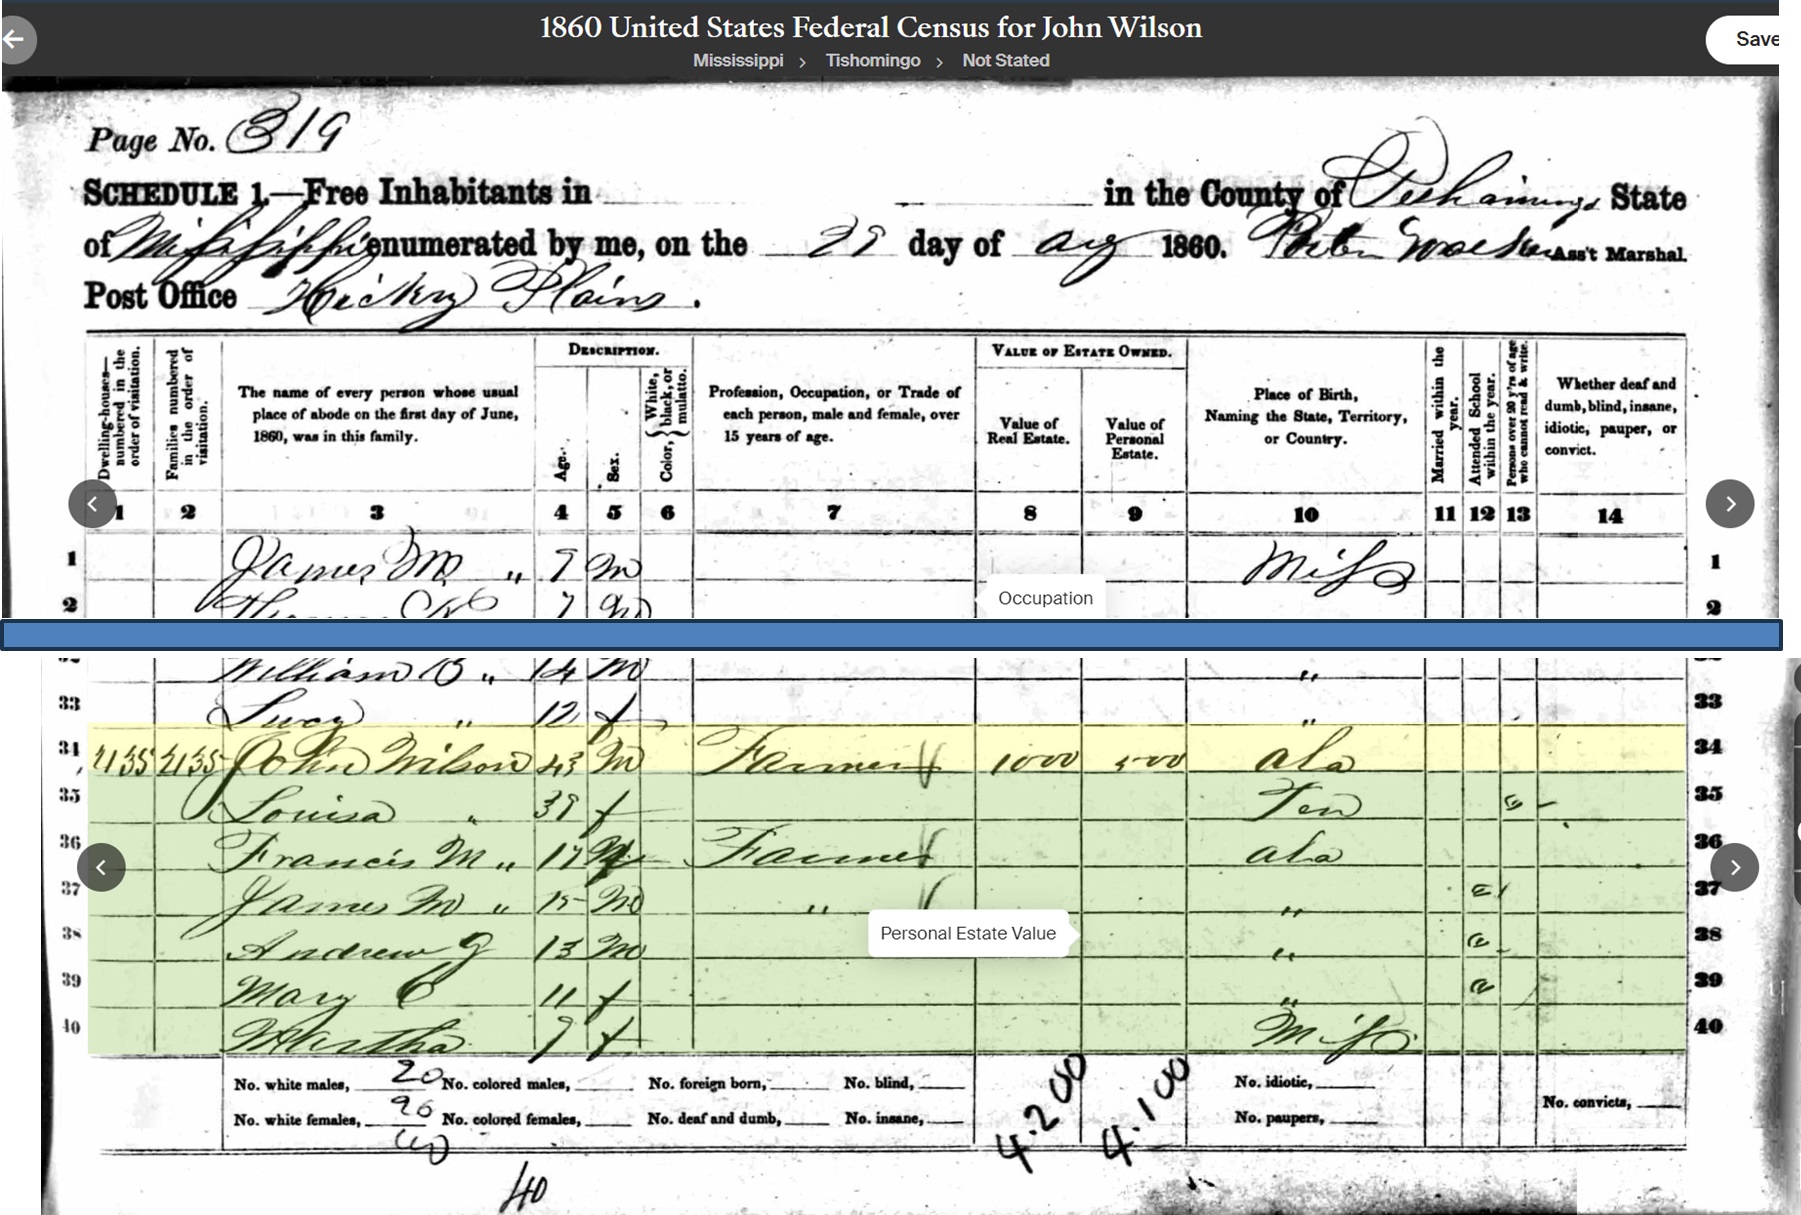 1860 United States Federal Census for John Wilson
Mississippi > Tishomingo > Not Stated
Save
Page No. 319
SCHEDULE 1.—Free Inhabitants in in the County of Tishomingo State
of Mississippi enumerated by me, on the 29 day of Aug 1860. Ass't Marshal.
Post Office Hickory Plains.
Dwelling-houses—numbered in the order of visitation.
Families numbered in the order of visitation.
The name of every person whose usual place of abode on the first day of June, 1860, was in this family.
DESCRIPTION.
Age.
Sex.
Color, { White, black, or mulatto.
Profession, Occupation, or Trade of each person, male and female, over 15 years of age.
VALUE OF ESTATE OWNED.
Value of Real Estate.
Value of Personal Estate.
Place of Birth, Naming the State, Territory, or Country.
Married within the year.
Attended School within the year.
Persons over 20 y'rs of age who cannot read & write.
Whether deaf and dumb, blind, insane, idiotic, pauper, or convict.
1 2 3 4 5 6 7 8 9 10 11 12 13 14
1 James M " 9 M Miss 1
2 7 M 2
Occupation
William B " 14 M "
33 Lucy " 12 f " 33
34 2135 2135 John Wilson 43 M Farmer 1000 500 Ala 34
35 Louisa " 39 f Ten 35
36 Francis M " 17 Farmer Ala 36
37 James M " 15 M " " 37
38 Andrew J 13 M " 38
Personal Estate Value
39 Mary C 11 f " 39
40 Martha 9 f Miss 40
No. white males, 20 No. colored males, No. foreign born, No. blind, 4.200 4.100 No. idiotic,
No. white females, 20 No. colored females, No. deaf and dumb, No. insane, No. paupers, No. convicts,
40
40